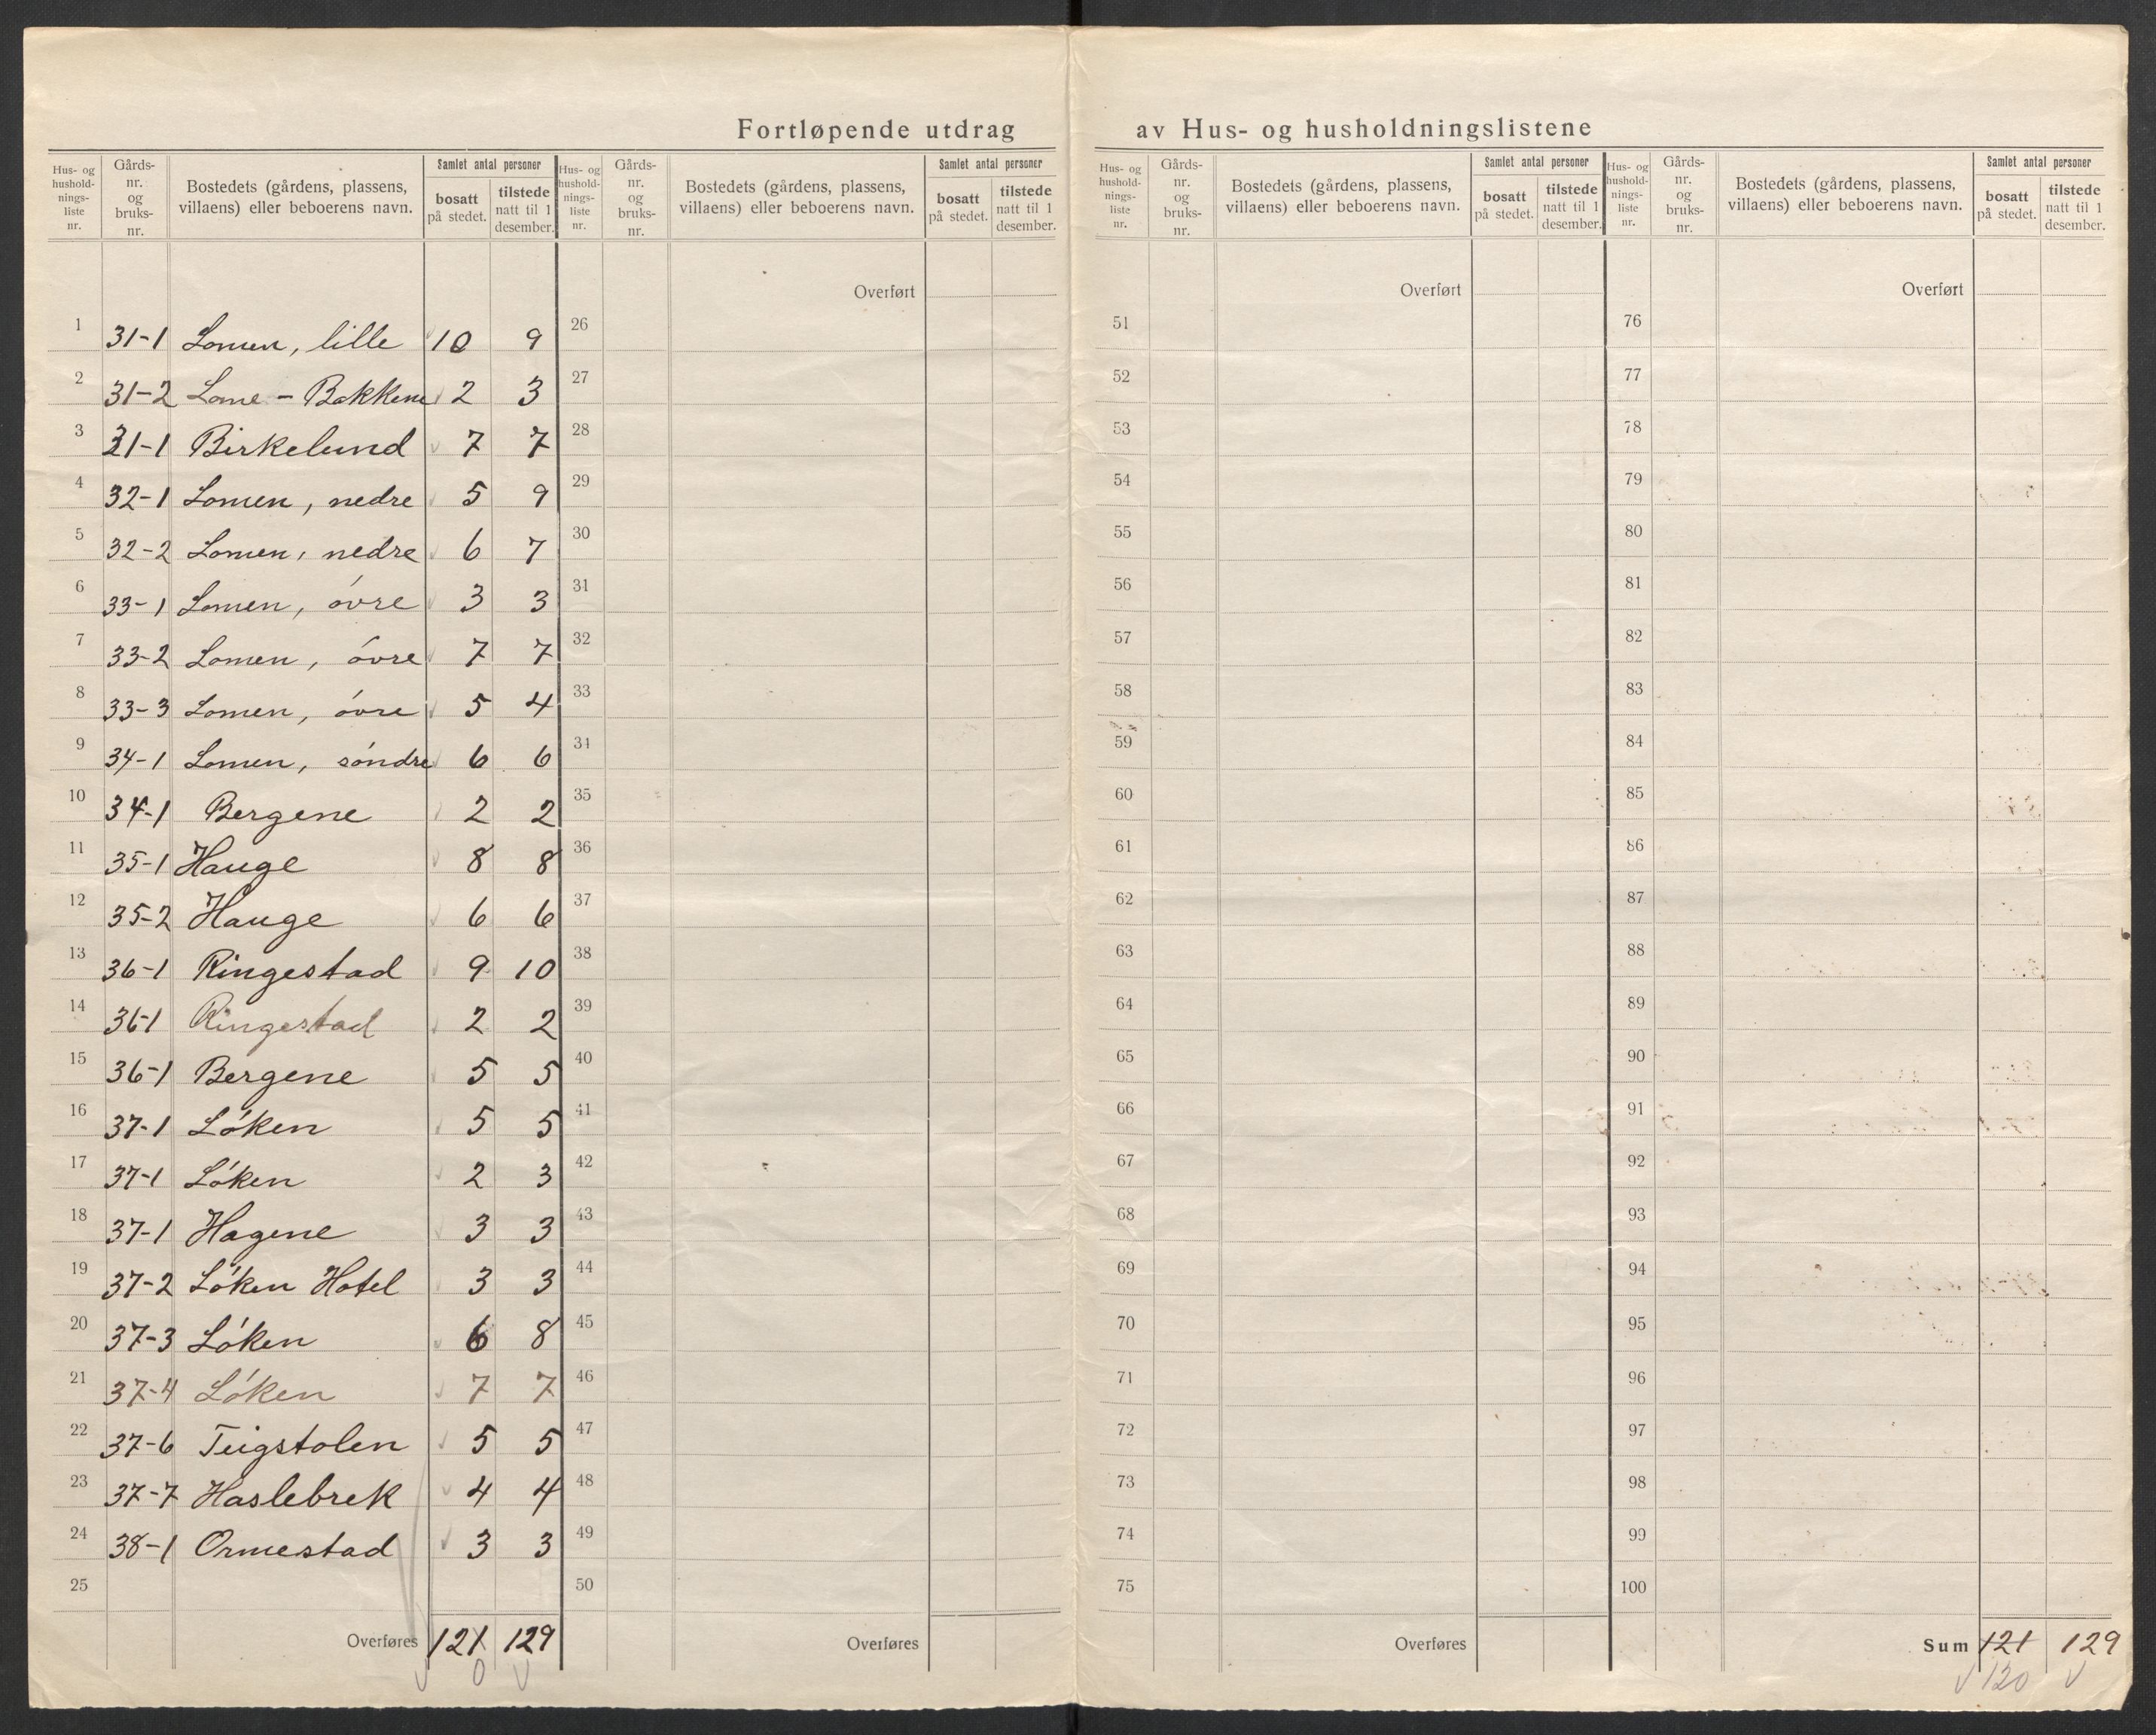 Fortløpende utdrag av Hus- og husholdningslistene
Hus- og hushold- nings- liste nr. Gårds- nr. og bruks- nr. Bostedets (gårdens, plassens, villaens) eller beboerens navn. Samlet antal personer bosatt på stedet. tilstede natt til 1 desember.
Hus- og hushold- nings- liste nr. Gårds- nr. og bruks- nr. Bostedets (gårdens, plassens, villaens) eller beboerens navn. Samlet antal personer bosatt på stedet. tilstede natt til 1 desember.
Hus- og hushold- nings- liste nr. Gårds- nr. og bruks- nr. Bostedets (gårdens, plassens, villaens) eller beboerens navn. Samlet antal personer bosatt på stedet. tilstede natt til 1 desember.
Hus- og hushold- nings- liste nr. Gårds- nr. og bruks- nr. Bostedets (gårdens, plassens, villaens) eller beboerens navn. Samlet antal personer bosatt på stedet. tilstede natt til 1 desember.
Overført Overført Overført
1 31-1 Lomen, lille 10 9 26 51 76
2 31-2 Lome - Bakkene 2 3 27 52 77
3 31-1 Birkelund 7 7 28 53 78
4 32-1 Lomen, nedre 5 9 29 54 79
5 32-2 Lomen, nedre 6 7 30 55 80
6 33-1 Lomen, óvre 3 3 31 56 81
7 33-2 Lomen, óvre 7 7 32 57 82
8 33-3 Lomen, óvre 5 4 33 58 83
9 34-1 Lomen, sóndre 6 6 34 59 84
10 34-1 Bergene 2 2 35 60 85
11 35-1 Hauge 8 8 36 61 86
12 35-2 Hauge 6 6 37 62 87
13 36-1 Ringestad 9 10 38 63 88
14 36-1 Ringestad 2 2 39 64 89
15 36-1 Bergene 5 5 40 65 90
16 37-1 Lóken 5 5 41 66 91
17 37-1 Lóken 2 3 42 67 92
18 37-1 Hagene 3 3 43 68 93
19 37-2 Lóken Hotel 3 3 44 69 94
20 37-3 Lóken 6 8 45 70 95
21 37-4 Lóken 7 7 46 71 96
22 37-6 Teigstolen 5 5 47 72 97
23 37-7 Haslebrek 4 4 48 73 98
24 38-1 Ormestad 3 3 49 74 99
25 50 75 100
Overføres 121 129 Overføres Overføres Sum 121 129
0 120